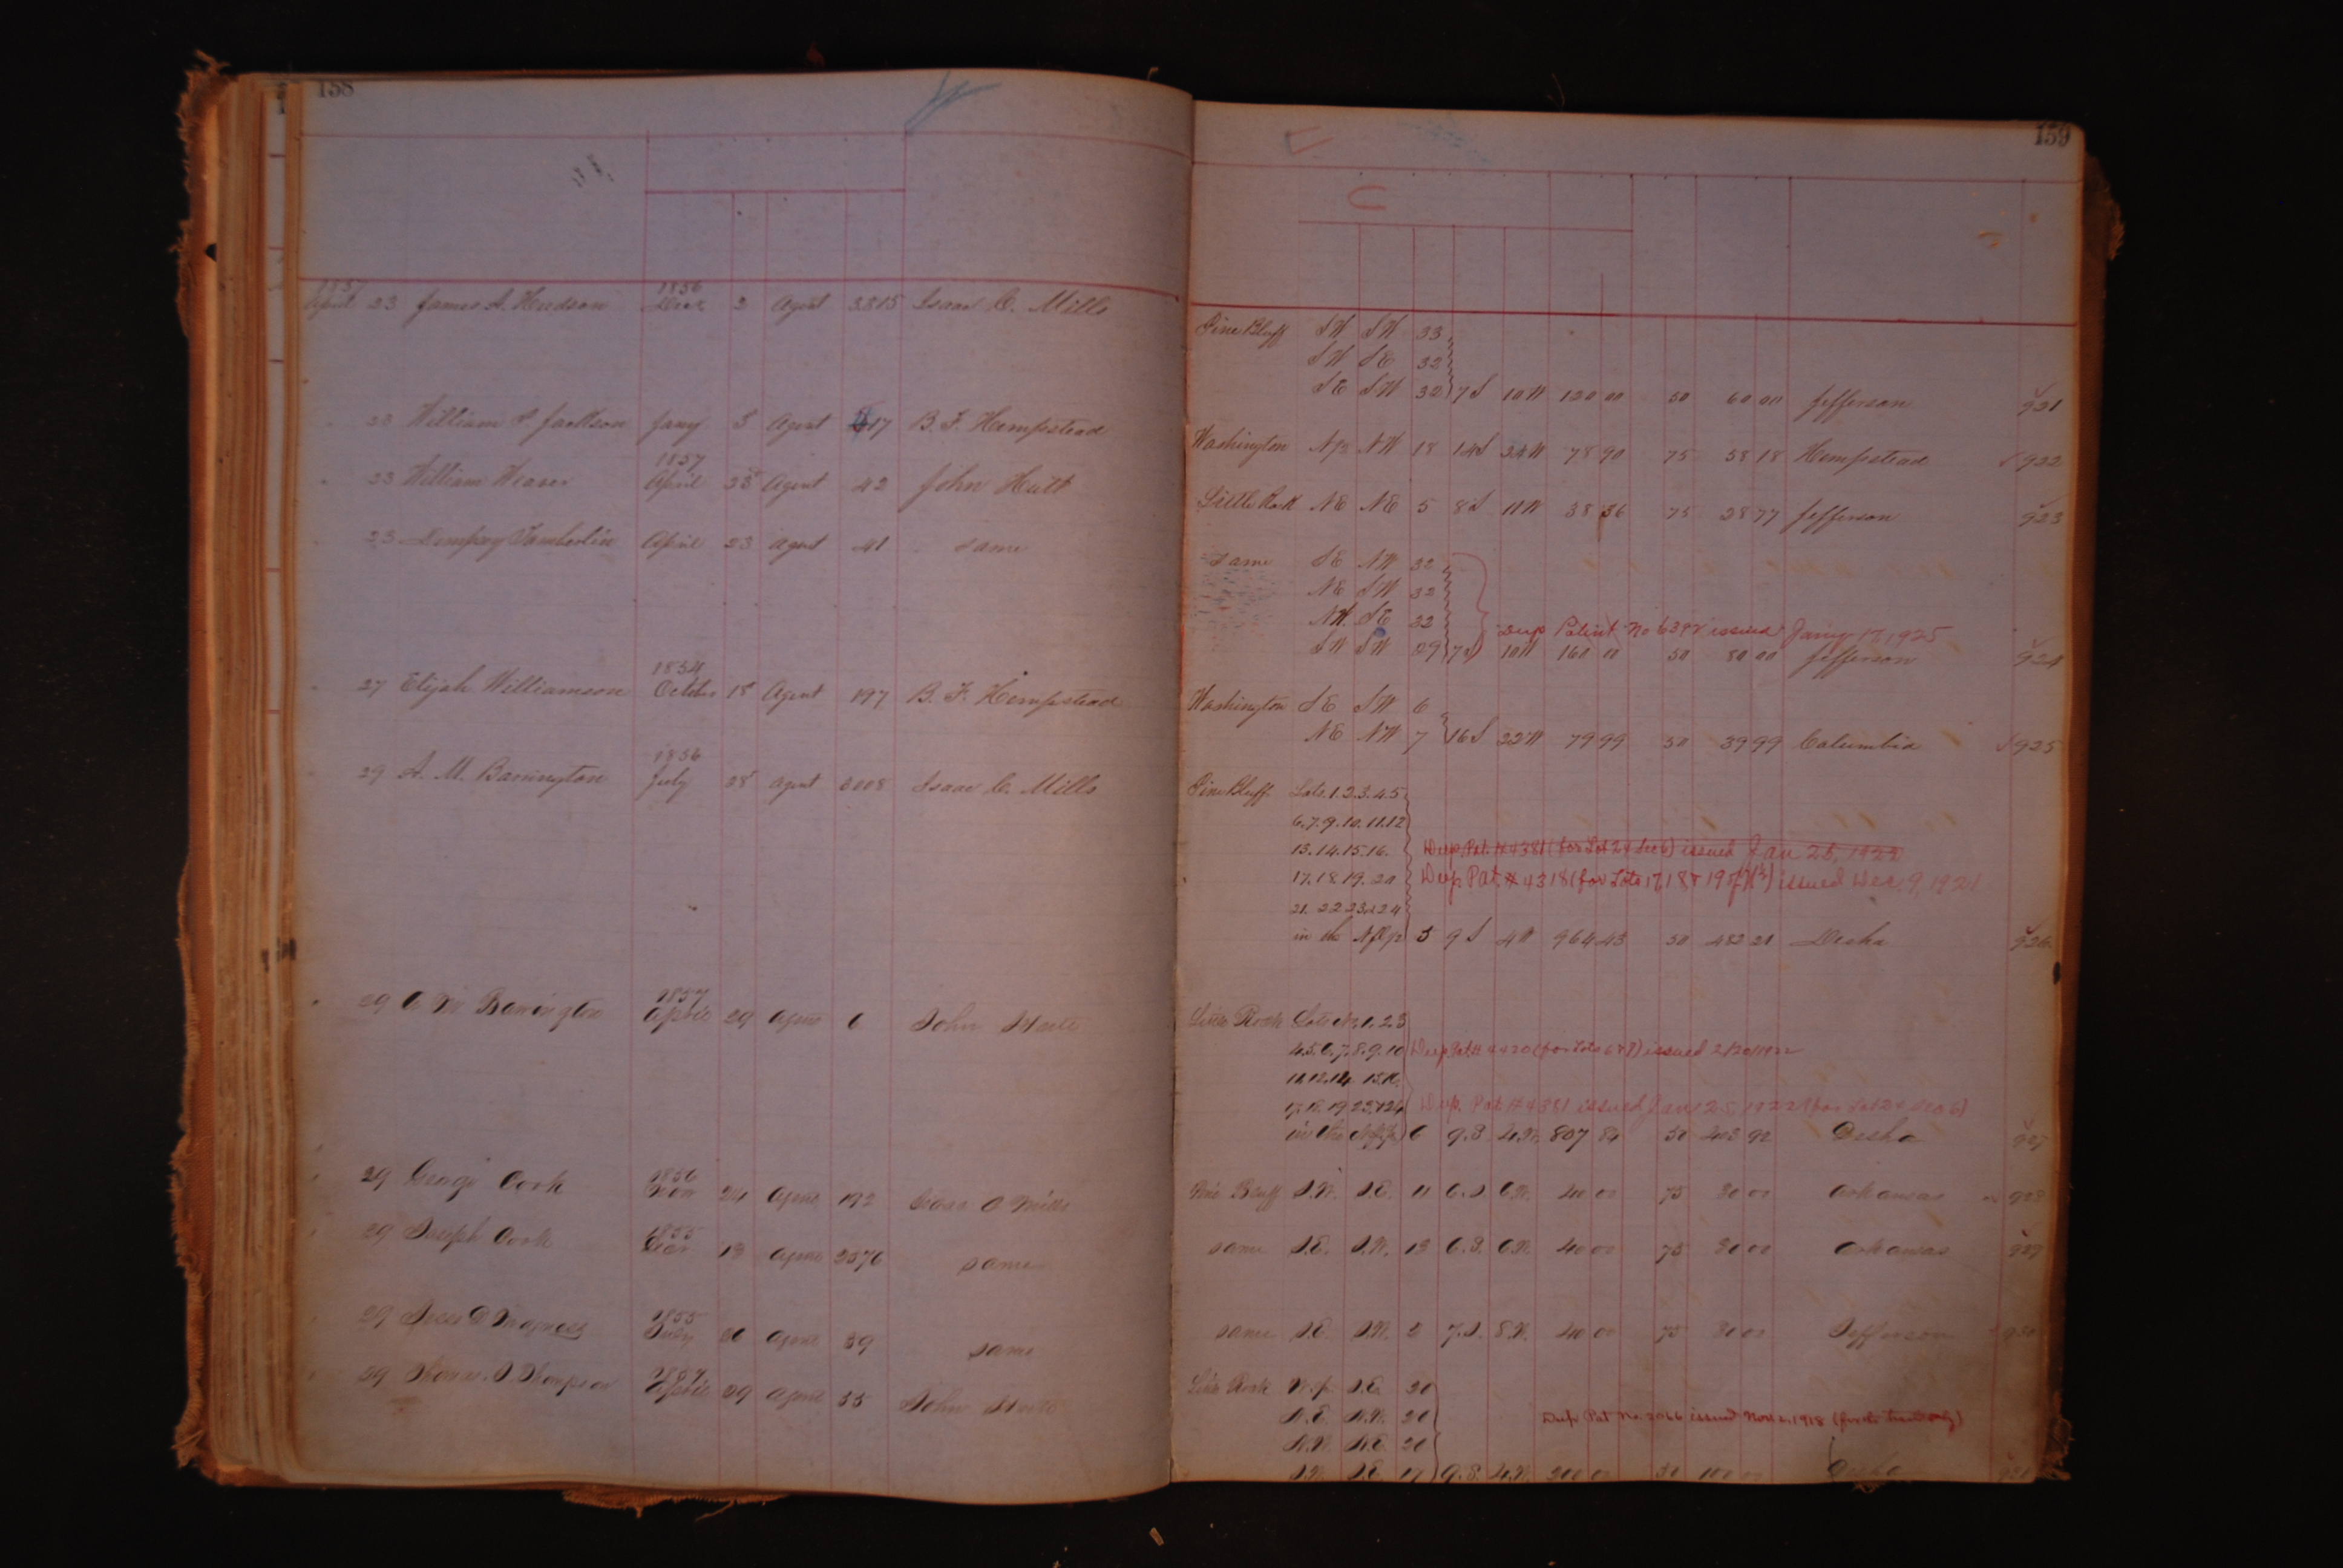 158
1857
April 23 James A. Hudson 1856 Decr 2 Agent 3315 Isaac C. Mills
23 William P. Jackson Jany 5 Agent 17 B. F. Hempstead
23 William Weaver 1857 April 23 Agent 42 John Hutt
23 Dempsey Tamberlin April 23 Agent 41 same
27 Elijah Williamson 1854 October 18 Agent 197 B. F. Hempstead
29 A. M. Barrington 1856 July 28 Agent 3008 Isaac C. Mills
29 A M Barrington 1857 April 29 Agent 6 John Hutt
29 George Cook 1856 Novr 24 Agent 192 Isaac C Mills
29 Joseph Cook 1855 13 Agent 2576 same
29 D Magness 1855 July 26 Agent 39 same
29 Thomas D Thompson 1857 April 29 Agent 55 John Hutt
159
Pine Bluff SW SW 33
SW SE 32
SE SW 32 7S 10W 120 00 50 60 00 Jefferson 921
Washington NW 18 14S 24W 78 90 75 58 18 Hempstead 922
Little Rock NE NE 5 8S 11W 38 36 75 28 77 Jefferson 923
same SE NW 32
NE SW 32
NW SE 32 Dup Patent No 6392 issued Jany 17, 1925
SW SW 29 7S 10W 160 00 50 80 00 Jefferson 924
Washington SE SW 6
NE NW 7 16S 22W 79 99 50 39 99 Columbia 925
Pine Bluff Lots 1.2.3.4.5
6.7.9.10.11.12
13.14.15.16. Dup. Pat. #4381 (for Lot 24 Sec 6) issued Jan 25, 1922
17.18.19.20 Dup Pat. #4318 (for Lots 17, 18 & 19) issued Dec. 9, 1921
21. 22 23 & 24
in the 5 9S 4W 964 43 50 482 21 Desha 926
Little Rock Lots No. 1. 2.3
4.5.6.7.8.9.10 Dup. Pat # 4420 (for Lots 6 & 7) issued 2/20/1922
11.12.14 15.16.
17.18.19 23 & 24 Dup. Pat. #4381 issued Jan 25, 1922 (for Lot 24 Sec 6)
in the 6 9.S. 4.W. 807 84 50 403 92 Desha 927
Pine Bluff S.W. S.E. 11 6.S. 6.W. 40 00 75 30 00 Arkansas 928
same S.E. S.W. 13 6.S. 6.W. 40 00 75 30 00 Arkansas 929
same S.E. S.W. 5 7.S. 8.W. 40 00 75 30 00 Jefferson 930
Little Rock S.E. 20
N.E. N.W. 20 Dup Pat No. 3066 issued Nov 2, 1918
N.W. N.E. 20
S.W. S.E. 17 9.S. 4.W. 200 00 50 100 00 Desha 931